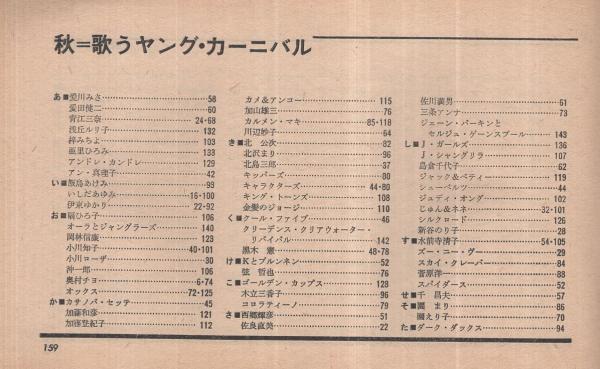 秋=歌うヤング・カーニバル
あ■愛川みさ…58
愛田健二…60
青江三奈…24・68
浅丘ルリ子…132
梓みちよ…103
亜里ひろみ…133
アンドレ・カンドレ…129
アン・真理子…42
い■飯島あけみ…93
いしだあゆみ…16・100
伊東ゆかり…22・92
お■扇ひろ子…106
オーラとジャングラーズ…140
岡林信康…123
小川知子…40・101
小川ローザ…30
沖一郎…106
奥村チヨ…6・74
オックス…72・125
か■カサノバ・セッテ…45
加藤和彦…121
加藤登紀子…112
カメ&アンコー…115
加山雄三…76
カルメン・マキ…85・118
川辺妙子…64
き■北 公次…82
北沢まり…96
北島三郎…37
キッパーズ…80
キャラクターズ…44・80
キング・トーンズ…108
金髪のジョージ…110
く■クール・ファイブ…46
クリーデンス・クリアウォーター・
リバイバル…142
黒木 憲…48・78
け■Kとブルンネン…52
弦 哲也…76
こ■ゴールデン・カップス…128
木立三香子…96
コロラティーノ…79
さ■西郷輝彦…51
佐良直美…22
佐川満男…61
三条アンナ…73
ジェーン・バーキンと
セルジュ・ゲーンスブール…143
し■J・ガールズ…136
J・シャングリラ…107
島倉千代子…62
ジャック&ベティ…119
シューベルツ…44
ジュディ・オング…102
じゅん&ネネ…32・101
シルクロード…126
新谷のり子…28
す■水前寺清子…54・105
ズー・ニー・ヴー…29
スカイ・クレーバー…84
菅原洋一…88
スパイダース…52
せ■千 昌夫…57
そ■園 まり…86
園えり子…70
た■ダーク・ダックス…94
159